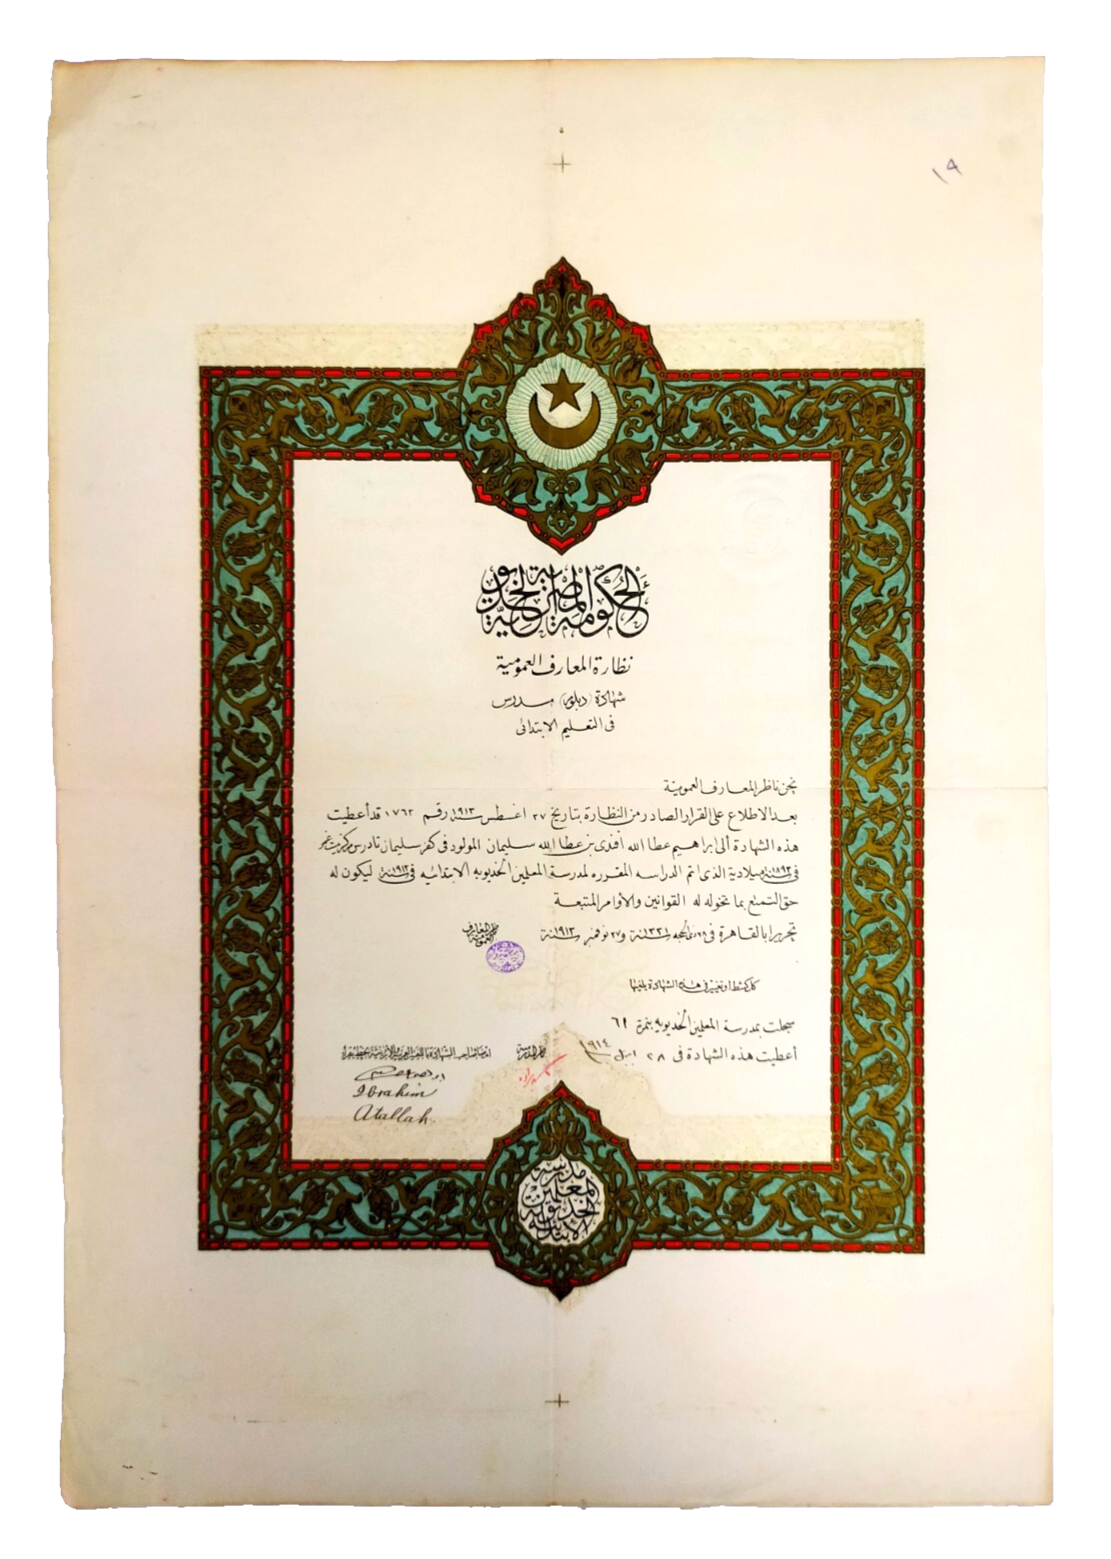 ١٩
الحكومة المصرية الخديوية
نظارة المعارف العمومية
شهادة (دبلوم) مدرس
فى التعليم الابتدائى
نحن ناظر المعارف العمومية
بعد الاطلاع على القرار الصادر من النظارة بتاريخ ٢٧ اغسطس سنة ١٩١٣ رقم ١٧٦٢ قد أعطيت
هذه الشهادة ألى ابراهيم عطا الله افندى بن عطا الله سليمان المولود فى كفر سليمان تادرس مركز ميت غمر
فى سنة ١٨٩٢ ميلادية الذى اتم الدراسه المقرره لمدرسة المعلمين الخديويه الابتدائيه فى سنة ١٩١٣ ليكون له
حق التمتع بما تخوله له القوانين والأوامر المتبعة
تحريرا بالقاهرة فى ٢٨ ذى الحجه سنة ١٣٣١ و ٢٧ نوفمبر سنة ١٩١٣
ناظر المعارف العمومية
كل كشط او تغيير فى هذه الشهادة يلغيها
سجلت بمدرسة المعلمين الخديويه بنمرة ٦١
أعطيت هذه الشهادة فى ٢٨ ابريل سنة ١٩١٤
ناظر المدرسة
امضا صاحب الشهادة باللغتين العربية والافرنكية بخط يده
Ibrahim
Atallah
مدرسة
المعلمين
الخديوية
الابتدائية